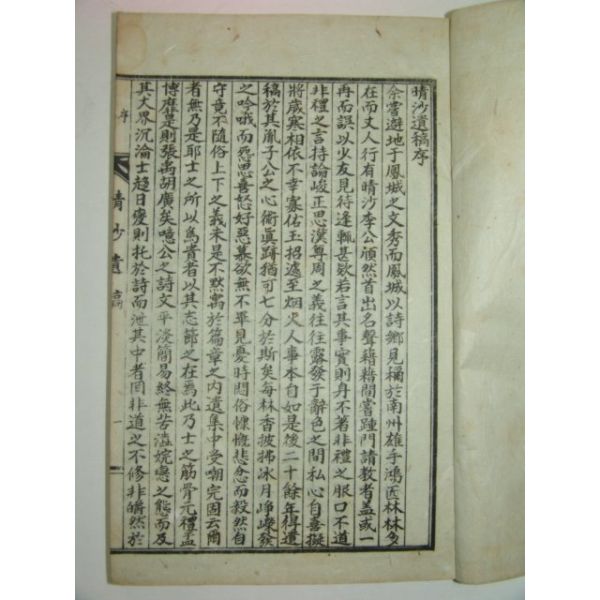 晴沙遺稿序
余嘗遊地于鳳城之文秀而鳳城以詩鄉見稱於南州雄手鴻匠林林多
在而丈人行有晴沙李公頎然首出名聲藉藉間嘗踵門請敎者盖或一
再而誤以少友見待逢輒甚欵若言其事實則身不著非禮之服口不道
非禮之言持論峻正思漢尊周之義往往露發于辭色之間私心自喜擬
將歲寒相依不幸寡佑玉招遽至烟火人事本自如是後二十餘年得遺
稿於其胤子公之心術眞蹟猶可七分於斯矣每林香披拂氷月崢嶸發
之吟哦而怨思喜怒好惡慕欲無不畢見憂時悶俗慷慨悲忿而毅然自
守竟不隨俗上下之義未是不默寓於篇章之內遺集中受嘲完固云爾
者無乃是耶士之所以爲貴者以其志節之在焉此乃士之筋骨元禮孟
博靡是則張禹胡廣矣噫公之詩文平淡簡易終無苦澁婉戀之態而及
其大界沉淪士趨日變則托於詩而泄其中者固非道之不修非瞭然於
序
晴沙遺稿
一